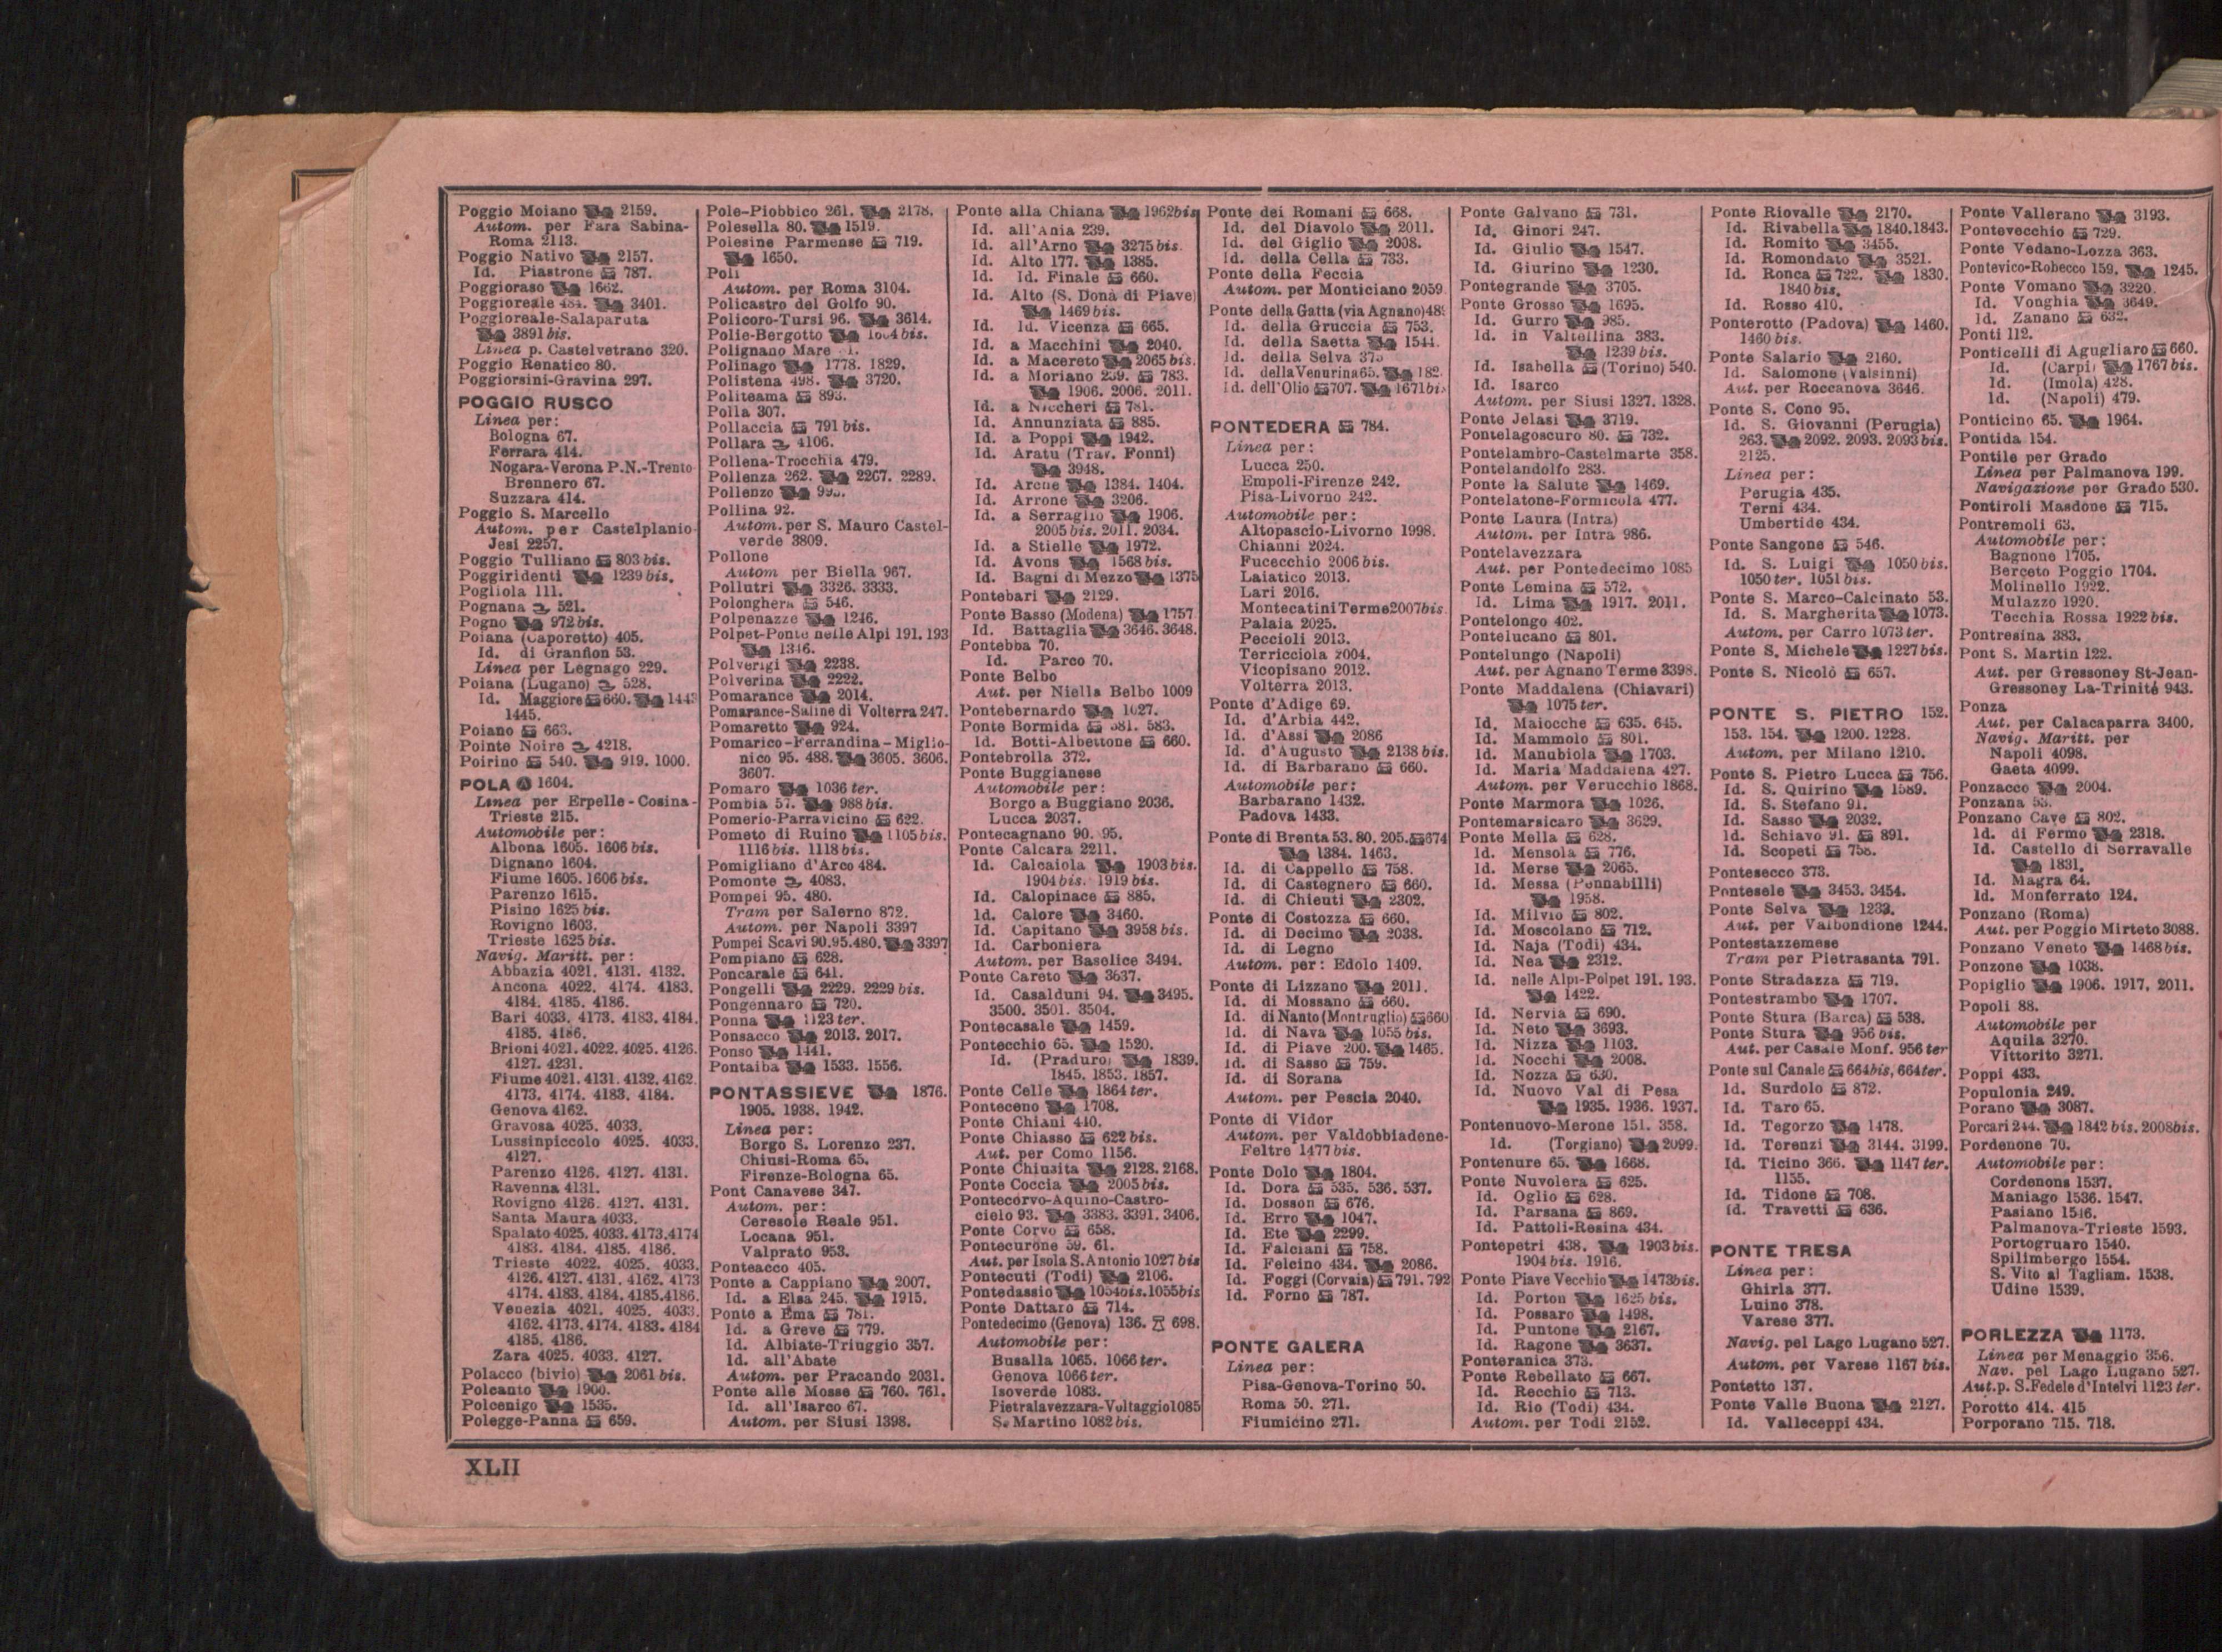 Poggio Moiano 2159.
Autom. per Fara Sabina-
Roma 2113.
Poggio Nativo 2157.
Id. Piastrone 787.
Poggioraso 1662.
Poggioreale 484. 3401.
Poggioreale-Salaparuta
3891 bis.
Linea p. Castelvetrano 320.
Poggio Renatico 80.
Poggiorsini-Gravina 297.
POGGIO RUSCO
Linea per:
Bologna 67.
Ferrara 414.
Nogara-Verona P.N.-Trento
Brennero 67.
Suzzara 414.
Poggio S. Marcello
Autom. per Castelplanio
Jesi 2257.
Poggio Tulliano 803 bis.
Poggiridenti 1239 bis.
Pogliola 111.
Pognana 521.
Pogno 972 bis.
Poiana (Caporetto) 405.
Id. di Granfion 53.
Linea per Legnago 229.
Poiana (Lugano) 528.
Id. Maggiore 660. 1443
1445.
Poiano 663.
Pointe Noire 4218.
Poirino 540. 919. 1000.
POLA 1604.
Linea per Erpelle-Cosina-
Trieste 215.
Automobile per:
Albona 1605. 1606 bis.
Dignano 1604.
Fiume 1605. 1606 bis.
Parenzo 1615.
Pisino 1625 bis.
Rovigno 1603.
Trieste 1625 bis.
Navig. Maritt. per:
Abbazia 4021. 4131. 4132.
Ancona 4022. 4174. 4183.
4184. 4185. 4186.
Bari 4033. 4173. 4183. 4184.
4185. 4186.
Brioni 4021. 4022. 4025. 4126.
4127. 4231.
Fiume 4021. 4131. 4132. 4162.
4173. 4174. 4183. 4184.
Genova 4162.
Gravosa 4025. 4033.
Lussinpiccolo 4025. 4033.
4127.
Parenzo 4126. 4127. 4131.
Ravenna 4131.
Rovigno 4126. 4127. 4131.
Santa Maura 4033.
Spalato 4025. 4033. 4173. 4174
4183. 4184. 4185. 4186.
Trieste 4022. 4025. 4033.
4126. 4127. 4131. 4162. 4173
4174. 4183. 4184. 4185. 4186.
Venezia 4021. 4025. 4033.
4162. 4173. 4174. 4183. 4184
4185. 4186.
Zara 4025. 4033. 4127.
Polacco (bivio) 2061 bis.
Polcanto 1900.
Polcenigo 1535.
Polegge-Panna 659.
Pole-Piobbico 261. 2178.
Polesella 80. 1519.
Polesine Parmense 719.
1650.
Poli
Autom. per Roma 3104.
Policastro del Golfo 90.
Policoro-Tursi 96. 3614.
Polie-Bergotto bis.
Polignano Mare
Polinago 1778. 1829.
Polistena 498. 3720.
Politeama 893.
Polla 307.
Pollaccia 791 bis.
Pollara 4106.
Pollena-Trocchia 479.
Pollenza 262. 2267. 2289.
Pollenzo
Pollina 92.
Autom. per S. Mauro Castel-
verde 3809.
Pollone
Autom per Biella 967.
Pollutri 3326. 3333.
Polonghera 546.
Polpenazze 1246.
Polpet-Ponte nelle Alpi 191. 193
1346.
Polverigi 2238.
Polverina 2222.
Pomarance 2014.
Pomarance-Saline di Volterra 247.
Pomaretto 924.
Pomarico-Ferrandina-Miglio-
nico 95. 488. 3605. 3606.
3607.
Pomaro 1036 ter.
Pombia 57. 988 bis.
Pomerio-Parravicino 622.
Pometo di Ruino 1105 bis.
1116 bis. 1118 bis.
Pomigliano d'Arco 484.
Pomonte 4083.
Pompei 95. 480.
Tram per Salerno 872.
Autom. per Napoli 3397
Pompei Scavi 90. 95. 480. 3397
Pompiano 628.
Poncarale 641.
Pongelli 2229. 2229 bis.
Pongennaro 720.
Ponna 1123 ter.
Ponsacco 2013. 2017.
Ponso 1441.
Pontaiba 1533. 1556.
PONTASSIEVE 1876.
1905. 1938. 1942.
Linea per:
Borgo S. Lorenzo 237.
Chiusi-Roma 65.
Firenze-Bologna 65.
Pont Canavese 347.
Autom. per:
Ceresole Reale 951.
Locana 951.
Valprato 953.
Ponteacco 405.
Ponte a Cappiano 2007.
Id. a Elsa 245. 1915.
Ponte a Ema 781.
Id. a Greve 779.
Id. Albiate-Triuggio 357.
Id. all'Abate
Autom. per Pracando 2031.
Ponte alle Mosse 760. 761.
Id. all'Isarco 67.
Autom. per Siusi 1398.
Ponte alla Chiana 1962 bis
Id. all'Ania 239.
Id. all'Arno 3275 bis.
Id. Alto 177. 1385.
Id. Id. Finale 660.
Id. Alto (S. Donà di Piave)
1469 bis.
Id. Id. Vicenza 665.
Id. a Macchini 2040.
Id. a Macereto 2065 bis.
Id. a Moriano 239. 783.
1906. 2006. 2011.
Id. a Niccheri 781.
Id. Annunziata 885.
Id. a Poppi 1942.
Id. Aratu (Trav. Fonni)
3948.
Id. Arche 1384. 1404.
Id. Arrone 3206.
Id. a Serraglio 1906.
2005 bis. 2011. 2034.
Id. a Stielle 1972.
Id. Avons 1568 bis.
Id. Bagni di Mezzo 1375
Pontebari 2129.
Ponte Basso (Modena) 1757
Id. Battaglia 3646. 3648.
Pontebba 70.
Id. Parco 70.
Ponte Belbo
Aut. per Niella Belbo 1009
Pontebernardo 1027.
Ponte Bormida 581. 583.
Id. Botti-Albettone 660.
Pontebrolla 372.
Ponte Buggianese
Automobile per:
Borgo a Buggiano 2036.
Lucca 2037.
Pontecagnano 90. 95.
Ponte Calcara 2211.
Id. Calcaiola 1903 bis.
1904 bis. 1919 bis.
Id. Calopinace 885.
Id. Calore 3460.
Id. Capitano 3958 bis.
Id. Carboniera
Autom. per Baselice 3494.
Ponte Careto 3637.
Id. Casalduni 94. 3495.
3500. 3501. 3504.
Pontecasale 1459.
Pontecchio 65. 1520.
Id. (Praduro) 1839.
1845. 1853. 1857.
Ponte Celle 1864 ter.
Ponteceno 1708.
Ponte Chiani 440.
Ponte Chiasso 622 bis.
Aut. per Como 1156.
Ponte Chiusita 2128. 2168.
Ponte Coccia 2005 bis.
Pontecorvo-Aquino-Castro-
cielo 93. 3383. 3391. 3406.
Ponte Corvo 658.
Pontecurone 59. 61.
Aut. per Isola S. Antonio 1027 bis
Pontecuti (Todi) 2106.
Pontedassio 1054 bis. 1055 bis
Ponte Dattaro 714.
Pontedecimo (Genova) 136. 698.
Automobile per:
Busalla 1065. 1066 ter.
Genova 1066 ter.
Isoverde 1083.
Pietralavezzara-Voltaggio 1085
S. Martino 1082 bis.
Ponte dei Romani 668.
Id. del Diavolo 2011.
Id. del Giglio 2008.
Id. della Cella 733.
Ponte della Feccia
Autom. per Monticiano 2059.
Ponte della Gatta (via Agnano)
Id. della Gruccia 753.
Id. della Saetta 1544.
Id. della Selva
Id. della Venurina 65. 182.
Id. dell'Olio 707. 1671 bis
PONTEDERA 784.
Linea per:
Lucca 250.
Empoli-Firenze 242.
Pisa-Livorno 242.
Automobile per:
Altopascio-Livorno 1998.
Chianni 2024.
Fucecchio 2006 bis.
Laiatico 2013.
Lari 2016.
Montecatini Terme 2007 bis.
Palaia 2025.
Peccioli 2013.
Terricciola 2004.
Vicopisano 2012.
Volterra 2013.
Ponte d'Adige 69.
Id. d'Arbia 442.
Id. d'Assi 2086
Id. d'Augusto 2138 bis.
Id. di Barbarano 660.
Automobile per:
Barbarano 1432.
Padova 1433.
Ponte di Brenta 53. 80. 205. 674
1384. 1463.
Id. di Cappello 758.
Id. di Castegnero 660.
Id. di Chieuti 2302.
Ponte di Costozza 660.
Id. di Decimo 2038.
Id. di Legno
Autom. per: Edolo 1409.
Ponte di Lizzano 2011.
Id. di Mossano 660.
Id. di Nanto (Montruglio) 660
Id. di Nava 1055 bis.
Id. di Piave 200. 1465.
Id. di Sasso 759.
Id. di Sorana
Autom. per Pescia 2040.
Ponte di Vidor
Autom. per Valdobbiadene-
Feltre 1477 bis.
Ponte Dolo 1804.
Id. Dora 535. 536. 537.
Id. Dosson 676.
Id. Erro 1047.
Id. Ete 2299.
Id. Falciani 758.
Id. Felcino 434. 2086.
Id. Foggi (Corvaia) 791. 792
Id. Forno 787.
PONTE GALERA
Linea per:
Pisa-Genova-Torino 50.
Roma 50. 271.
Fiumicino 271.
Ponte Galvano 731.
Id. Ginori 247.
Id. Giulio 1547.
Id. Giurino 1230.
Pontegrande 3705.
Ponte Grosso 1695.
Id. Gurro 985.
Id. in Valtellina 383.
1239 bis.
Id. Isabella (Torino) 540.
Id. Isarco
Autom. per Siusi 1327. 1328.
Ponte Jelasi 3719.
Pontelagoscuro 80. 732.
Pontelambro-Castelmarte 358.
Pontelandolfo 283.
Ponte la Salute 1469.
Pontelatone-Formicola 477.
Ponte Laura (Intra)
Autom. per Intra 986.
Pontelavezzara
Aut. per Pontedecimo 1085
Ponte Lemina 572.
Id. Lima 1917. 2011.
Pontelongo 402.
Pontelucano 801.
Pontelungo (Napoli)
Aut. per Agnano Terme 3398.
Ponte Maddalena (Chiavari)
1075 ter.
Id. Maiocche 635. 645.
Id. Mammolo 801.
Id. Manubiola 1703.
Id. Maria Maddalena 427.
Autom. per Verucchio 1868.
Ponte Marmora 1026.
Pontemarsicaro 3629.
Ponte Mella 628.
Id. Mensola 776.
Id. Merse 2065.
Id. Messa (Pennabilli)
1958.
Id. Milvio 802.
Id. Moscolano 712.
Id. Naja (Todi) 434.
Id. Nea 2312.
Id. nelle Alpi-Polpet 191. 193.
1422.
Id. Nervia 690.
Id. Neto 3693.
Id. Nizza 1103.
Id. Nocchi 2008.
Id. Nozza 630.
Id. Nuovo Val di Pesa
1935. 1936. 1937.
Pontenuovo-Merone 151. 358.
Id. (Torgiano) 2099.
Pontenure 65. 1668.
Ponte Nuvolera 625.
Id. Oglio 628.
Id. Parsana 869.
Id. Pattoli-Resina 434.
Pontepetri 438. 1903 bis.
1904 bis. 1916.
Ponte Piave Vecchio 1473 bis.
Id. Porton 1625 bis.
Id. Possaro 1498.
Id. Puntone 2167.
Id. Ragone 3637.
Ponteranica 373.
Ponte Rebellato 667.
Id. Recchio 713.
Id. Rio (Todi) 434.
Autom. per Todi 2152.
Ponte Riovalle 2170.
Id. Rivabella 1840. 1843.
Id. Romito 3455.
Id. Romondato 3521.
Id. Ronca 722. 1830.
1840 bis.
Id. Rosso 410.
Ponterotto (Padova) 1460.
1460 bis.
Ponte Salario 2160.
Id. Salomone (Valsinni)
Aut. per Roccanova 3646.
Ponte S. Cono 95.
Id. S. Giovanni (Perugia)
263. 2092. 2093. 2093 bis.
2125.
Linea per:
Perugia 435.
Terni 434.
Umbertide 434.
Ponte Sangone 546.
Id. S. Luigi 1050 bis.
1050 ter. 1051 bis.
Ponte S. Marco-Calcinato 53.
Id. S. Margherita 1073.
Autom. per Carro 1073 ter.
Ponte S. Michele 1227 bis.
Ponte S. Nicolò 657.
PONTE S. PIETRO 152.
153. 154. 1200. 1228.
Autom. per Milano 1210.
Ponte S. Pietro Lucca 756.
Id. S. Quirino 1589.
Id. S. Stefano 91.
Id. Sasso 2032.
Id. Schiavo 91. 891.
Id. Scopeti 758.
Pontesecco 373.
Pontesele 3453. 3454.
Ponte Selva 1233.
Aut. per Valbondione 1244.
Pontestazzemese
Tram per Pietrasanta 791.
Ponte Stradazza 719.
Pontestrambo 1707.
Ponte Stura (Barca) 538.
Ponte Stura 956 bis.
Aut. per Casale Monf. 956 ter
Ponte sul Canale 664 bis, 664 ter.
Id. Surdolo 872.
Id. Taro 65.
Id. Tegorzo 1478.
Id. Terenzi 3144. 3199.
Id. Ticino 366. 1147 ter.
1155.
Id. Tidone 708.
Id. Travetti 636.
PONTE TRESA
Linea per:
Ghirla 377.
Luino 378.
Varese 377.
Navig. pel Lago Lugano 527.
Autom. per Varese 1167 bis.
Pontetto 137.
Ponte Valle Buona 2127.
Id. Valleceppi 434.
Ponte Vallerano 3193.
Pontevecchio 729.
Ponte Vedano-Lozza 363.
Pontevico-Robecco 159. 1245.
Ponte Vomano 3220.
Id. Vonghia 3649.
Id. Zanano 632.
Ponti 112.
Ponticelli di Agugliaro 660.
Id. (Carpi) 1767 bis.
Id. (Imola) 428.
Id. (Napoli) 479.
Ponticino 65. 1964.
Pontida 154.
Pontile per Grado
Linea per Palmanova 199.
Navigazione per Grado 530.
Pontiroli Masdone 715.
Pontremoli 63.
Automobile per:
Bagnone 1705.
Berceto Poggio 1704.
Molinello 1922.
Mulazzo 1920.
Tecchia Rossa 1922 bis.
Pontresina 383.
Pont S. Martin 122.
Aut. per Gressoney St-Jean-
Gressoney La-Trinité 943.
Ponza
Aut. per Calacaparra 3400.
Navig. Maritt. per
Napoli 4098.
Gaeta 4099.
Ponzacco 2004.
Ponzana 53.
Ponzano Cave 802.
Id. di Fermo 2318.
Id. Castello di Serravalle
1831.
Id. Magra 64.
Id. Monferrato 124.
Ponzano (Roma)
Aut. per Poggio Mirteto 3088.
Ponzano Veneto 1468 bis.
Ponzone 1038.
Popiglio 1906. 1917. 2011.
Popoli 88.
Automobile per
Aquila 3270.
Vittorito 3271.
Poppi 433.
Populonia 249.
Porano 3087.
Porcari 244. 1842 bis. 2008 bis.
Pordenone 70.
Automobile per:
Cordenons 1537.
Maniago 1536. 1547.
Pasiano 1546.
Palmanova-Trieste 1593.
Portogruaro 1540.
Spilimbergo 1554.
S. Vito al Tagliam. 1538.
Udine 1539.
PORLEZZA 1173.
Linea per Menaggio 356.
Nav. pel Lago Lugano 527.
Aut. p. S. Fedele d'Intelvi 1123 ter.
Porotto 414. 415
Porporano 715. 718.
XLII